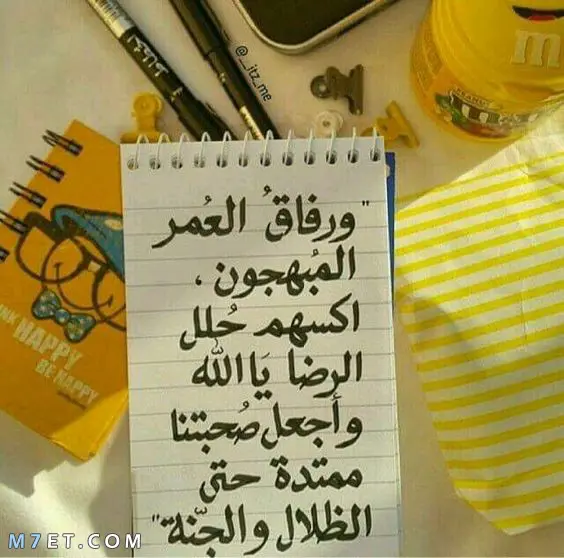 @__itz_me
"ورفاقُ العُمر
المُبهجون ،
اكسهم حُلل
الرضا يَا الله
وأجعل صُحبتنا
ممتدة حتى
الظلال والجنّة"
HAPPY
BE HAPPY
m
M7ET.COM